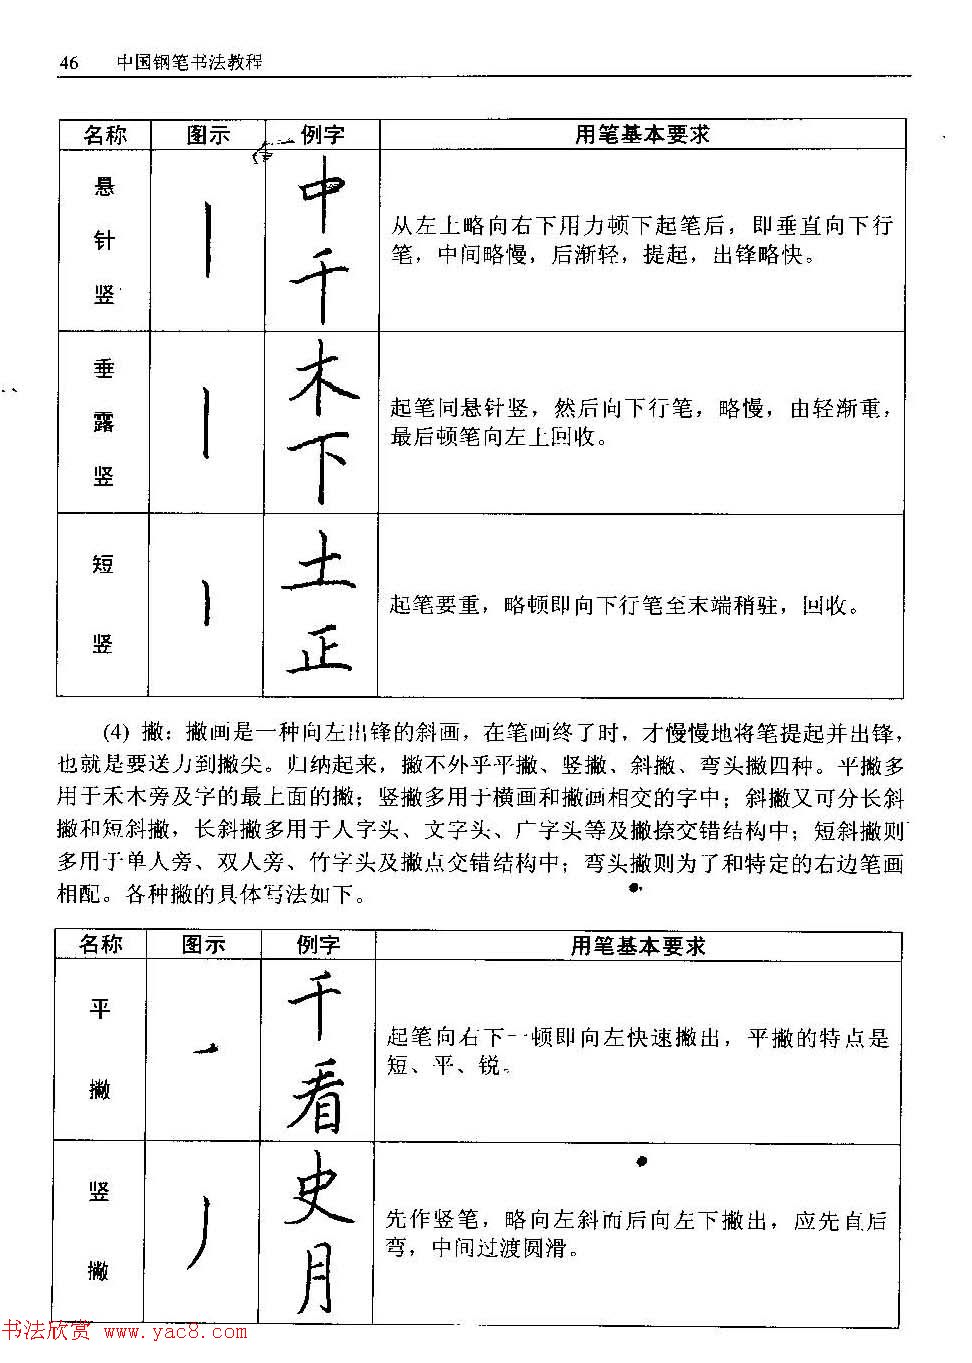 46 中国钢笔书法教程
名称 图示 例字 用笔基本要求
悬针竖 中千 从左上略向右下用力顿下起笔后，即垂直向下行
笔，中间略慢，后渐轻，提起，出锋略快。
垂露竖 木下 起笔同悬针竖，然后向下行笔，略慢，由轻渐重，
最后顿笔向左上回收。
短竖 土正 起笔要重，略顿即向下行笔至末端稍驻，回收。
(4) 撇：撇画是一种向左出锋的斜画，在笔画终了时，才慢慢地将笔提起并出锋，
也就是要送力到撇尖。归纳起来，撇不外乎平撇、竖撇、斜撇、弯头撇四种。平撇多
用于禾木旁及字的最上面的撇；竖撇多用于横画和撇画相交的字中；斜撇又可分长斜
撇和短斜撇，长斜撇多用于人字头、文字头、广字头等及撇捺交错结构中；短斜撇则
多用于单人旁、双人旁、竹字头及撇点交错结构中；弯头撇则为了和特定的右边笔画
相配。各种撇的具体写法如下。
名称 图示 例字 用笔基本要求
平撇 千看 起笔向右下一顿即向左快速撇出，平撇的特点是
短、平、锐。
竖撇 史月 先作竖笔，略向左斜而后向左下撇出，应先直后
弯，中间过渡圆滑。
书法欣赏 www.yac8.com